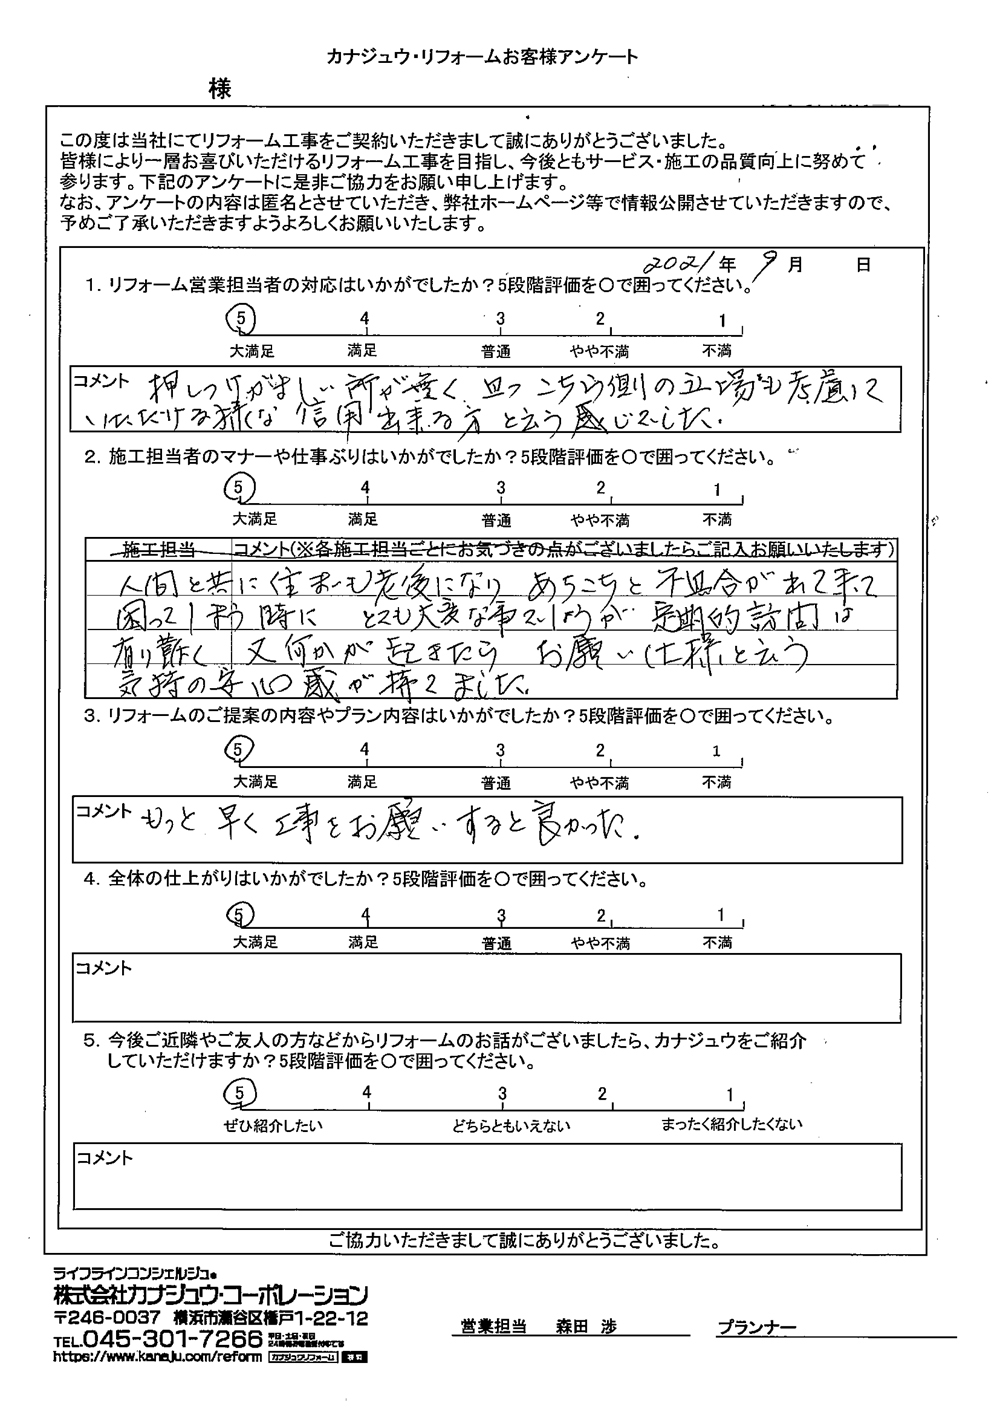 カナジュウ・リフォームお客様アンケート
様
この度は当社にてリフォーム工事をご契約いただきまして誠にありがとうございました。
皆様により一層お喜びいただけるリフォーム工事を目指し、今後ともサービス・施工の品質向上に努めて
参ります。下記のアンケートに是非ご協力をお願い申し上げます。
なお、アンケートの内容は匿名とさせていただき、弊社ホームページ等で情報公開させていただきますので、
予めご了承いただきますようよろしくお願いいたします。
2021年 9月 日
1. リフォーム営業担当者の対応はいかがでしたか？5段階評価を○で囲ってください。
5 4 3 2 1
大満足 満足 普通 やや不満 不満
コメント 押しつけがましい所が無く 且つこちら側の立場も考慮して
いただける様な信用出来る方と云う感じでした.
2. 施工担当者のマナーや仕事ぶりはいかがでしたか？5段階評価を○で囲ってください。
5 4 3 2 1
大満足 満足 普通 やや不満 不満
施工担当 コメント(※各施工担当ごとにお気づきの点がございましたらご記入お願いいたします)
人間と共に住まいも老後になり あちこちと不具合があれて来て
困ってしまう時に とても大変な事でしょうが 定期的訪問は
有り難く 又何かが起きたら お願い仕様と云う
気持の安心感が持てました.
3. リフォームのご提案の内容やプラン内容はいかがでしたか？5段階評価を○で囲ってください。
5 4 3 2 1
大満足 満足 普通 やや不満 不満
コメント もっと早く工事をお願いすると良かった.
4. 全体の仕上がりはいかがでしたか？5段階評価を○で囲ってください。
5 4 3 2 1
大満足 満足 普通 やや不満 不満
コメント
5. 今後ご近隣やご友人の方などからリフォームのお話がございましたら、カナジュウをご紹介
していただけますか？5段階評価を○で囲ってください。
5 4 3 2 1
ぜひ紹介したい どちらともいえない まったく紹介したくない
コメント
ご協力いただきまして誠にありがとうございました。
ライフラインコンシェルジュ®
株式会社カナジュウ・コーポレーション
〒246-0037 横浜市瀬谷区橋戸1-22-12
TEL.045-301-7266
https://www.kanaju.com/reform カナジュウリフォーム 検索
営業担当 森田 渉 プランナー